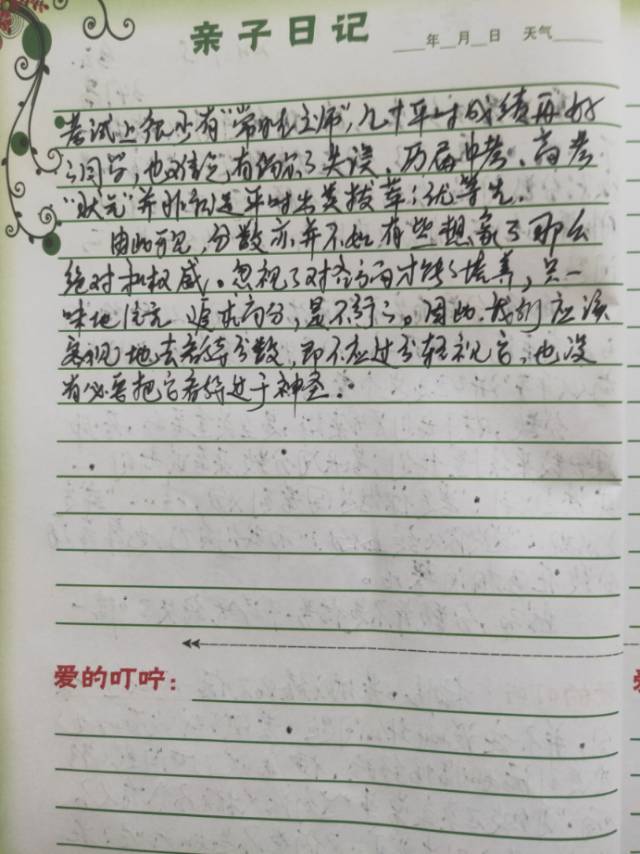 亲子日记 ___年__月__日 天气____
考试上很少有"常胜将军",几十平时成绩再好
的同学,也难免有偶尔的失误。历届中考、高考
"状元"并非就是平时出类拔萃的优等生。
由此可见,分数亦并不如有些想象的那么
绝对和权威。忽视了对各方面才能的培养,只一
味地注意追求高分,是不行的。因此,我们应该
客观地去看待分数,即不应过分轻视它,也没
有必要把它看得过于神圣。
爱的叮咛: